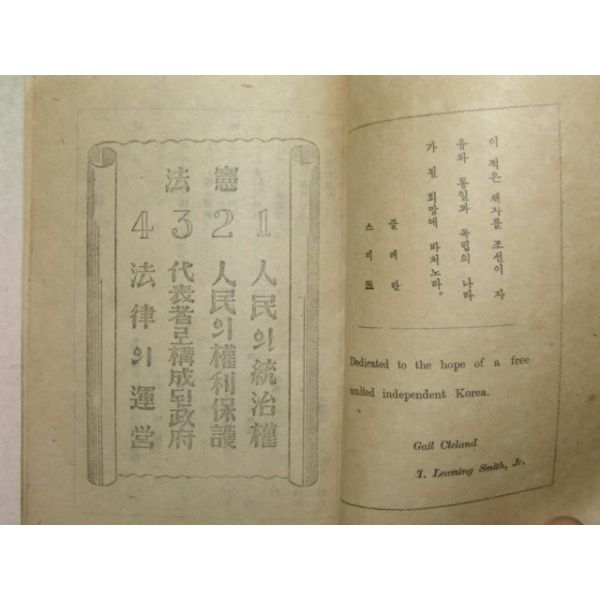 이 적은 책자를 조선이 자
유와 통일과 독립의 나라
가 될 희망에 바치노라.
클레란
스미트
Dedicated to the hope of a free
united independent Korea.
Gail Cleland
T. Leaming Smith, Jr.
憲法
1 人民의統治權
2 人民의權利保護
3 代表者로構成된政府
4 法律의運営